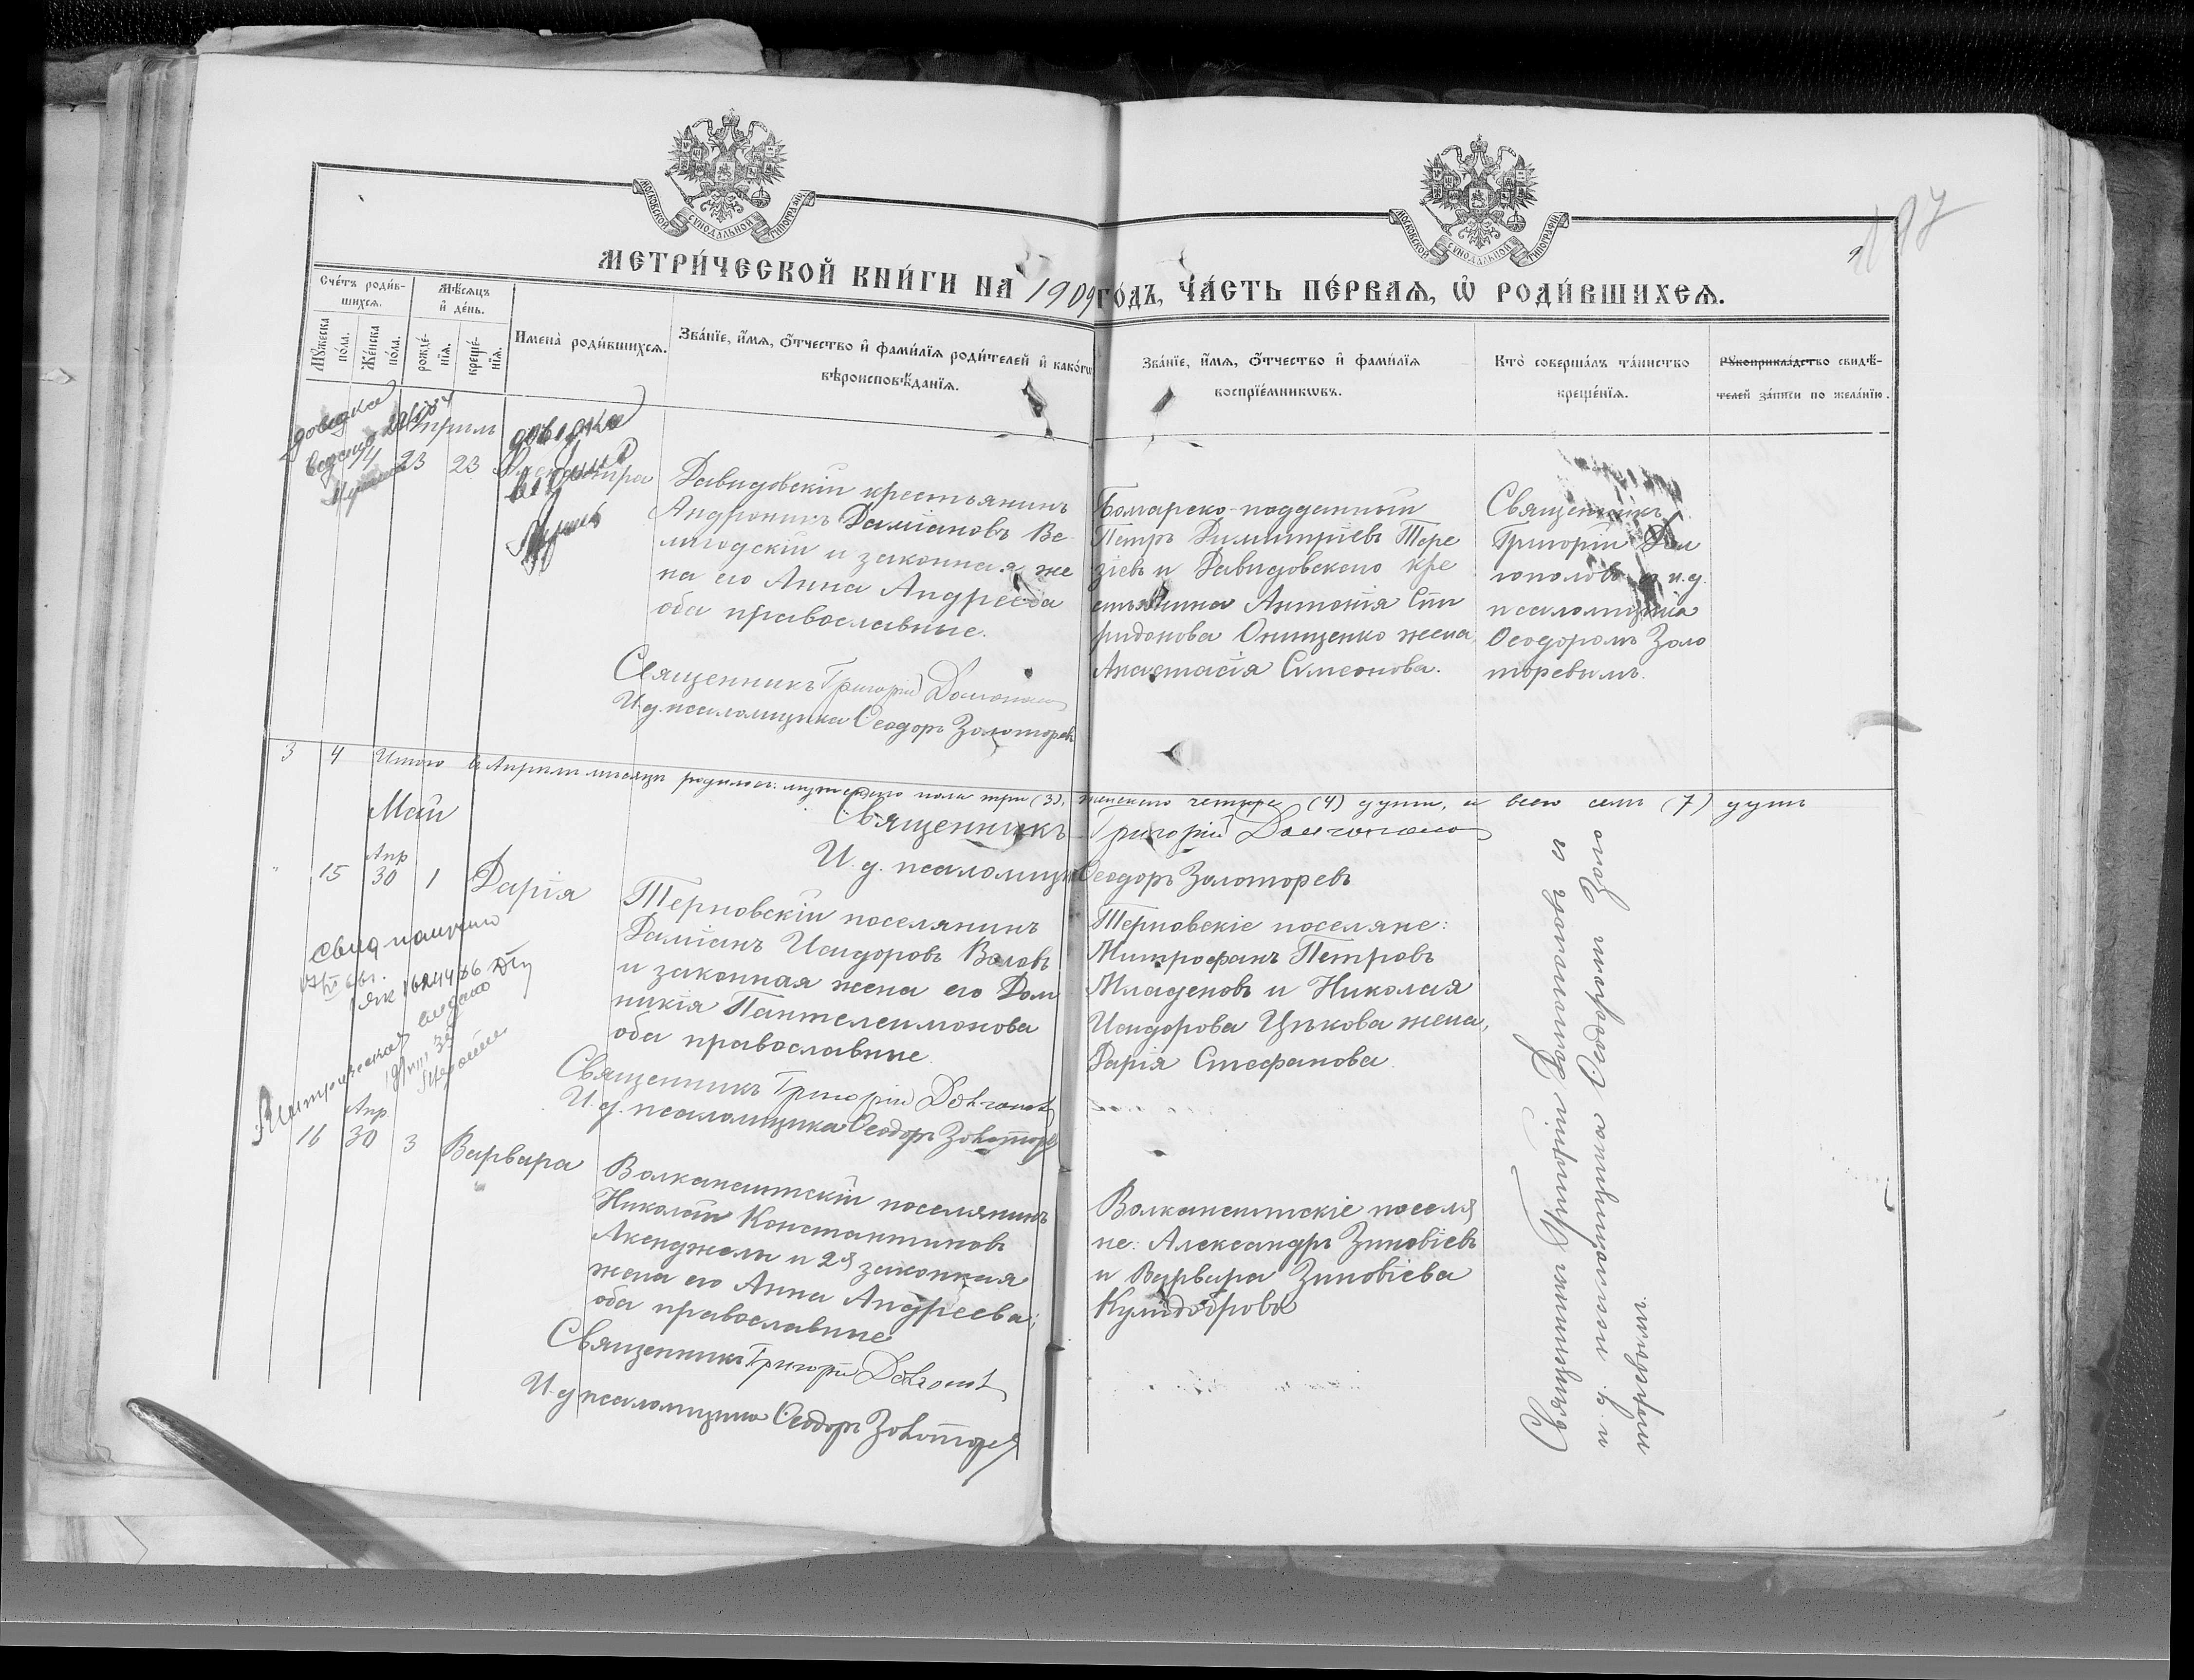 МОСКОВСКОЙ СѴНОДАЛЬНОЙ ТИПОГРАФІИ
МОСКОВСКОЙ СѴНОДАЛЬНОЙ ТИПОГРАФІИ
МЕТРИ́ЧЕСКОЙ КНИ́ГИ НА 1909 ГО́ДЪ, ЧА́СТЬ ПЕ́РВАѦ, Ѡ҆ РОДИ́ВШИХСѦ.
Сче́тъ роди́в-
шихсѧ.
Мѣ́сѧцъ
и҆ де́нь.
Мꙋ́жеска
по́ла.
Же́нска
по́ла.
рожде́-
нїѧ.
креще́-
нїѧ.
Имена̀ роди́вшихсѧ.
Зва́нїе, и҆́мѧ, ѻ҆́тчество и҆ фами́лїѧ роди́телей и҆ како́гѡ
вѣроисповѣ́данїѧ.
Зва́нїе, и҆́мѧ, ѻ҆́тчество и҆ фами́лїѧ
воспрїе́мникѡвъ.
Кто̀ соверша́лъ та́инство
креще́нїѧ.
Рꙋкоприкла́дство свидѣ́-
телей за́писи по жела́нїю.
14 23 23
Давидовскій крестьянинъ
Андроникъ Даміановъ Ве
лигодскій и законная же
на его Анна Андреева
оба православные.
Священникъ Григорій
И.д. псаломщика Ѳеодоръ Золоторевъ
Болгарско-подданный
Петръ Димитріевъ Тере
зіевъ и Давидовскаго кре
стьянина Антонія Спи
ридонова Онищенко жена,
Анастасія Сѵмеонова.
Священникъ
Григорій Дол
гополовъ и и.д.
псаломщика
Ѳеодоромъ Золо
торевымъ.
3 4 Итого въ Апрѣлѣ мѣсяцѣ родилось: мужескаго пола три (3), женскаго четыре (4) души, а всего семь (7) душъ
Священникъ Григорій
И. д. псаломщика Ѳеодоръ Золоторевъ
Май
" 15 Апр 30 1 Дарія
Терновскій поселянинъ
Даміанъ Исидоровъ Воловъ
и законная жена его Дом
никія Пантелеимонова
оба православные.
Священникъ Григорій
И. д. псаломщика Ѳеодоръ Золоторев
Терновскіе поселяне:
Митрофанъ Петровъ
Младеновъ и Николая
Исидорова Цѣкова жена,
Дарія Стефанова.
16 Апр 30 3 Варвара
Волканештскій поселянинъ
Николай Константиновъ
Акенджели и 2я законная
жена его Анна Андреева;
оба православные
Священникъ Григорій
И.д псаломщика Ѳеодоръ Золоторев
Волканештскіе поселя
не: Александръ Зиновіевъ
и Варвара Зиновіева
Священникъ Григорій Долгополовъ съ
и. д. псаломщика Ѳеодоромъ Золо
торевымъ.